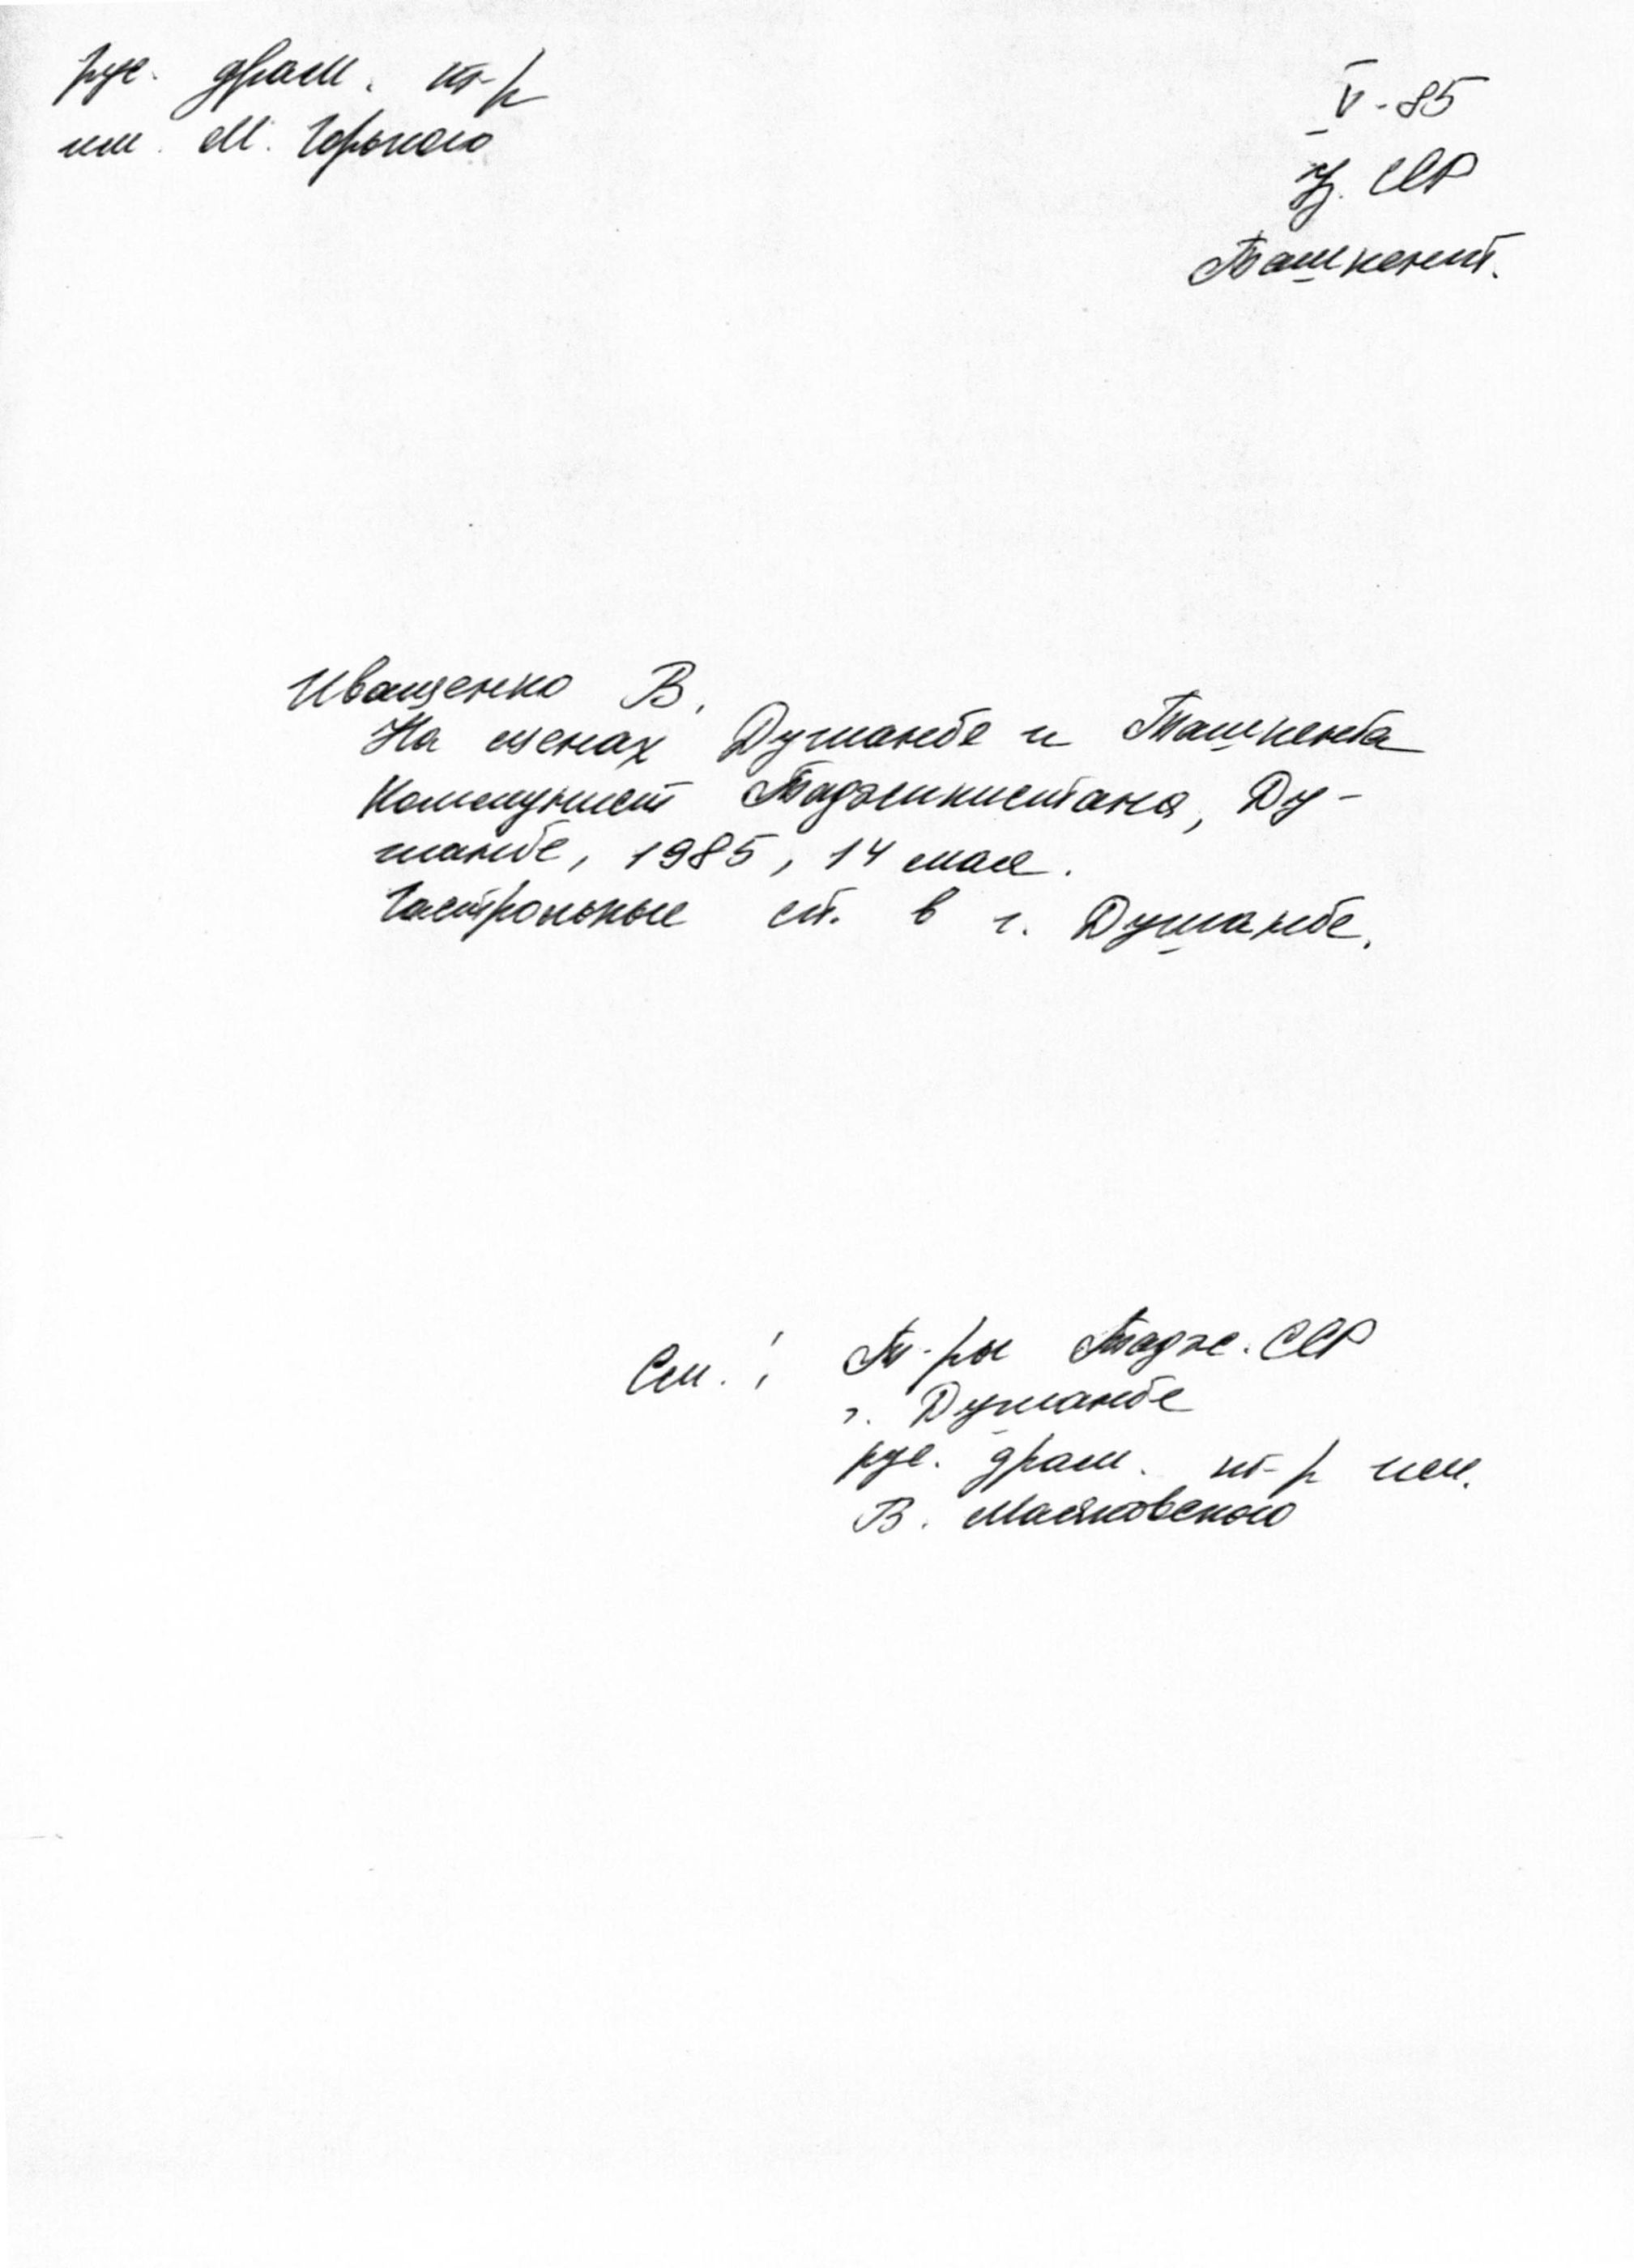 рус. драм. т-р
им. М. Горького
V-85
Уз. ССР
Ташкент.
Иващенко В.
На сценах Душанбе и Ташкента
Коммунист Таджикистана, Ду-
шанбе, 1985, 14 мая.
Гастрольные сп. в г. Душанбе.
См.: Т-ры Тадж. ССР
г. Душанбе
рус. драм. т-р им.
В. Маяковского